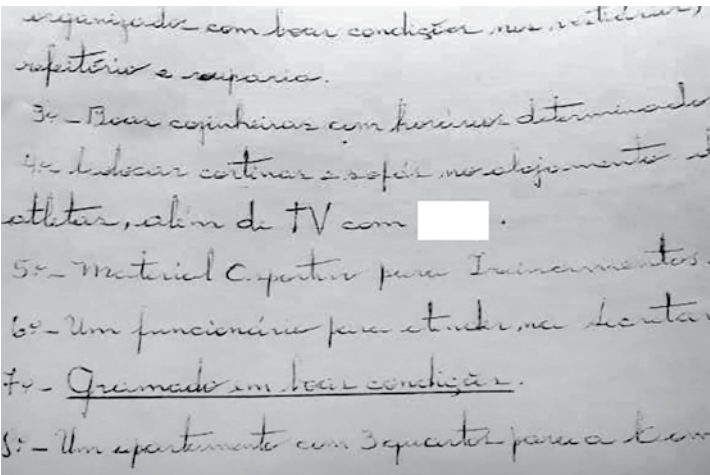 organizados com boas condições nos vestiários,
refeitório e rouparia.
3º - Boas cozinheiras com horários determinado
4º Colocar cortinas e sofás no alojamento d
atletas, além de TV com .
5º - Material Esportivo para Treinamentos.
6º - Um funcionário para atender, na secretar
7º - Gramado em boas condições.
8º - Um apartamento com 3 quartos para a